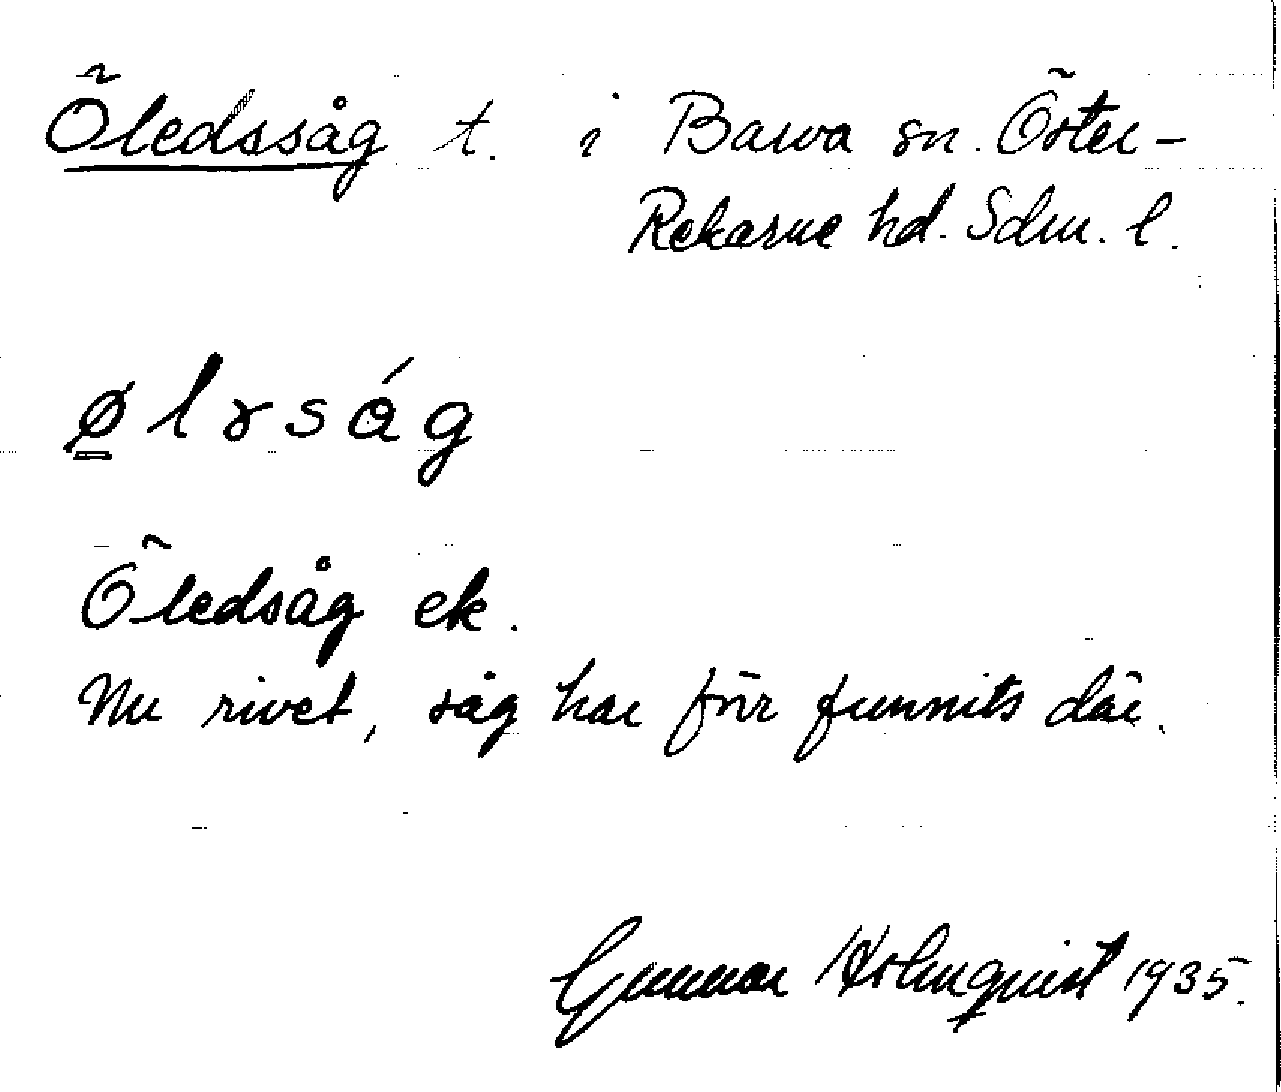 Öledssåg t. i Barva sn. Öster-
Rekarne hd. Sdm. l.
ø̳lrság
Öledsåg ek.
Nu rivet, såg har förr funnits där.
Gunnar Holmquist 1935.